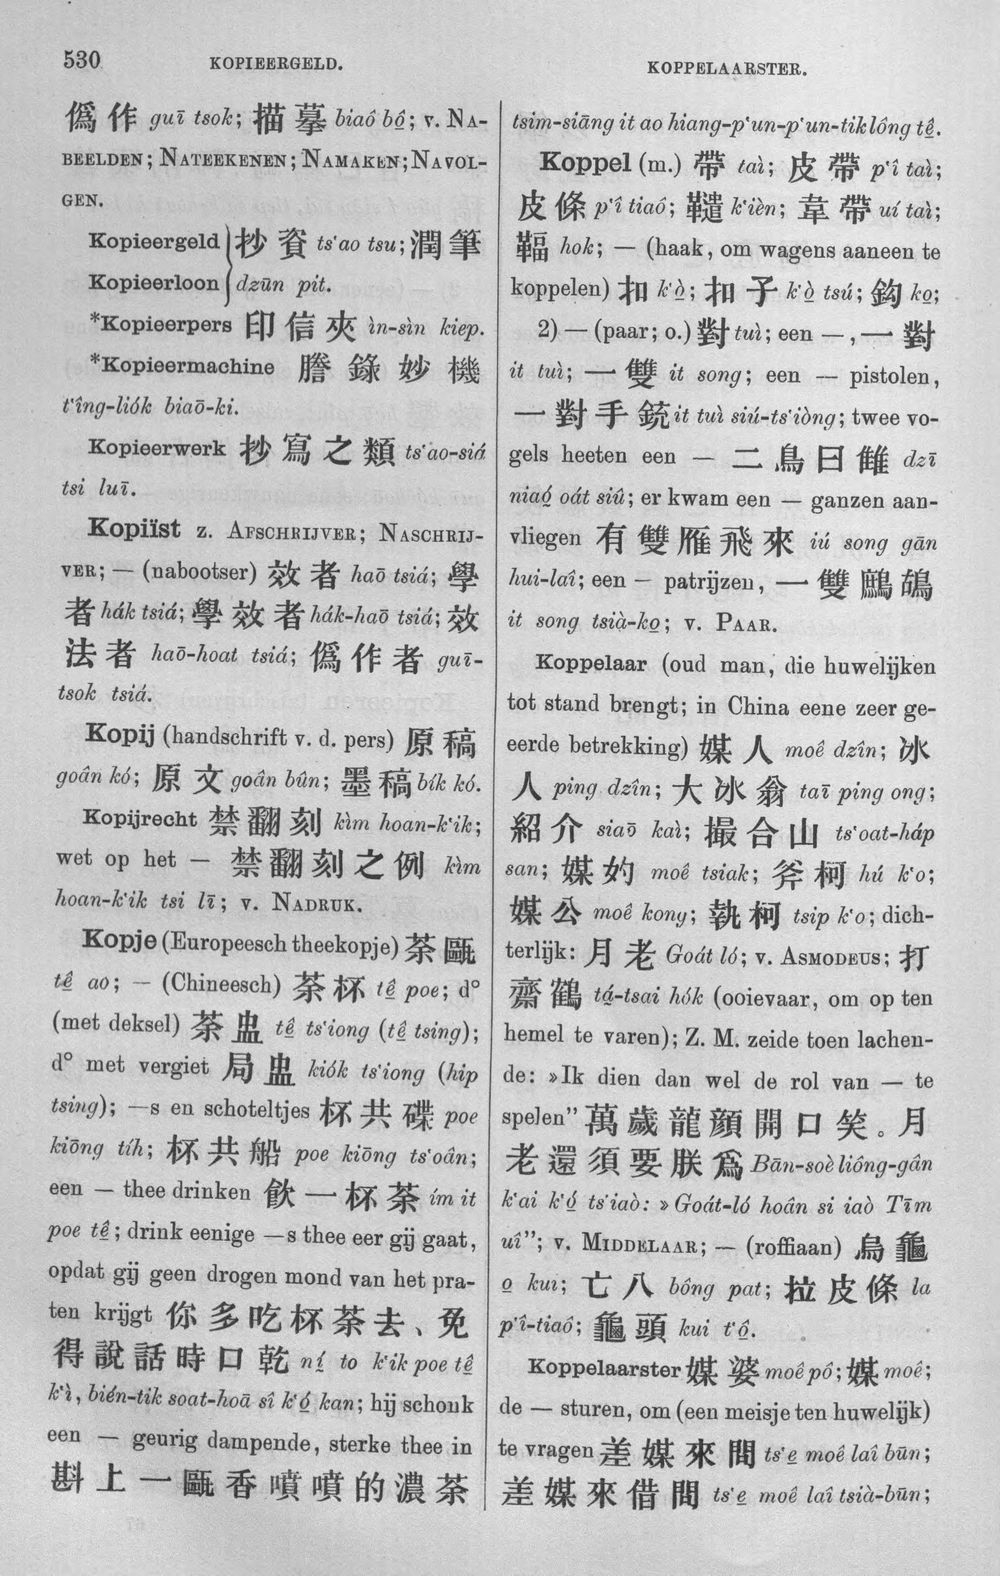 530 KOPIEERGELD. KOPPELAARSTER.
僞作 guī tsok; 描摹 biaô bô̤; v. NA-
BEELDEN; NATEEKENEN; NAMAKEN; NAVOL-
GEN.
Kopieergeld 抄資 ts‘ao tsu; 潤筆
Kopieerloon dzūn pit.
*Kopieerpers 印信夾 ìn-sìn kiep.
*Kopieermachine 謄錄妙機
t‘îng-liók biaō-ki.
Kopieerwerk 抄寫之類 ts‘ao-siá
tsi luī.
Kopiïst z. AFSCHRIJVER; NASCHRIJ-
VER; — (nabootser) 效者 haō tsiá; 學
者 hák tsiá; 學效者 hák-haō tsiá; 效
法者 haō-hoat tsiá; 僞作者 guī-
tsok tsiá.
Kopij (handschrift v. d. pers) 原稿
goân kó; 原文 goân bûn; 墨稿 bík kó.
Kopijrecht 禁翻刻 kìm hoan-k‘ik;
wet op het — 禁翻刻之例 kìm
hoan-k‘ik tsi lī; v. NADRUK.
Kopje (Europeesch theekopje) 茶甌
tê̤ ao; — (Chineesch) 茶杯 tê̤ poe; d°
(met deksel) 茶盅 tê̤ ts‘iong (tê̤ tsing);
d° met vergiet 局盅 kiók ts‘iong (hip
tsing); —s en schoteltjes 杯共碟 poe
kiōng tíh; 杯共船 poe kiōng ts‘oân;
een — thee drinken 飲一杯茶 ím it
poe tê̤; drink eenige —s thee eer gij gaat,
opdat gij geen drogen mond van het pra-
ten krijgt 你多吃杯茶去、免
得說話時口乾 ní̤ to k‘ik poe tê̤
k‘ì, bién-tik soat-hoā sî k‘ó̤ kan; hij schonk
een — geurig dampende, sterke thee in
斟上一甌香噴噴的濃茶
tsim-siāng it ao hiang-p‘un-p‘un-tik lông tê̤.
Koppel (m.) 帶 taì; 皮帶 p‘î taì;
皮條 p‘î tiaô; 韃 k‘ièn; 韋帶 uí taì;
鞴 hok; — (haak, om wagens aaneen te
koppelen) 扣 k‘ò̤; 扣子 k‘ò̤ tsú; 鈎 ko̤;
2) — (paar; o.) 對 tuì; een —, 一對
it tuì; 一雙 it song; een — pistolen,
一對手銃 it tuì siú-ts‘iòng; twee vo-
gels heeten een — 二鳥曰雔 dzī
niaó̤ oát siû; er kwam een — ganzen aan-
vliegen 有雙雁飛來 iú song gān
hui-laî; een — patrijzen, 一雙鷓鴣
it song tsià-ko̤; v. PAAR.
Koppelaar (oud man, die huwelijken
tot stand brengt; in China eene zeer ge-
eerde betrekking) 媒人 moê dzîn; 冰
人 ping dzîn; 大冰翁 taī ping ong;
紹介 siaō kaì; 撮合山 ts‘oat-háp
san; 媒妁 moê tsiak; 斧柯 hú k‘o;
媒公 moê kong; 執柯 tsip k‘o; dich-
terlijk: 月老 Goát ló; v. ASMODEUS; 打
齋鶴 tá̤-tsai hók (ooievaar, om op ten
hemel te varen); Z. M. zeide toen lachen-
de: »Ik dien dan wel de rol van — te
spelen” 萬歲龍顏開口笑。月
老還須要朕爲 Bān-soè liông-gân
k‘ai k‘ó̤ ts‘iaò: »Goát-ló hoân si iaò Tīm
uî”; v. MIDDELAAR; — (roffiaan) 烏龜
o̤ kui; 亡八 bông pat; 拉皮條 la
p‘î-tiaô; 龜頭 kui t‘ô̤.
Koppelaarster 媒婆 moê pô; 媒 moê;
de — sturen, om (een meisje ten huwelijk)
te vragen 差媒來問 ts‘e̤ moê laî būn;
差媒來借問 ts‘e̤ moê laî tsià-būn;